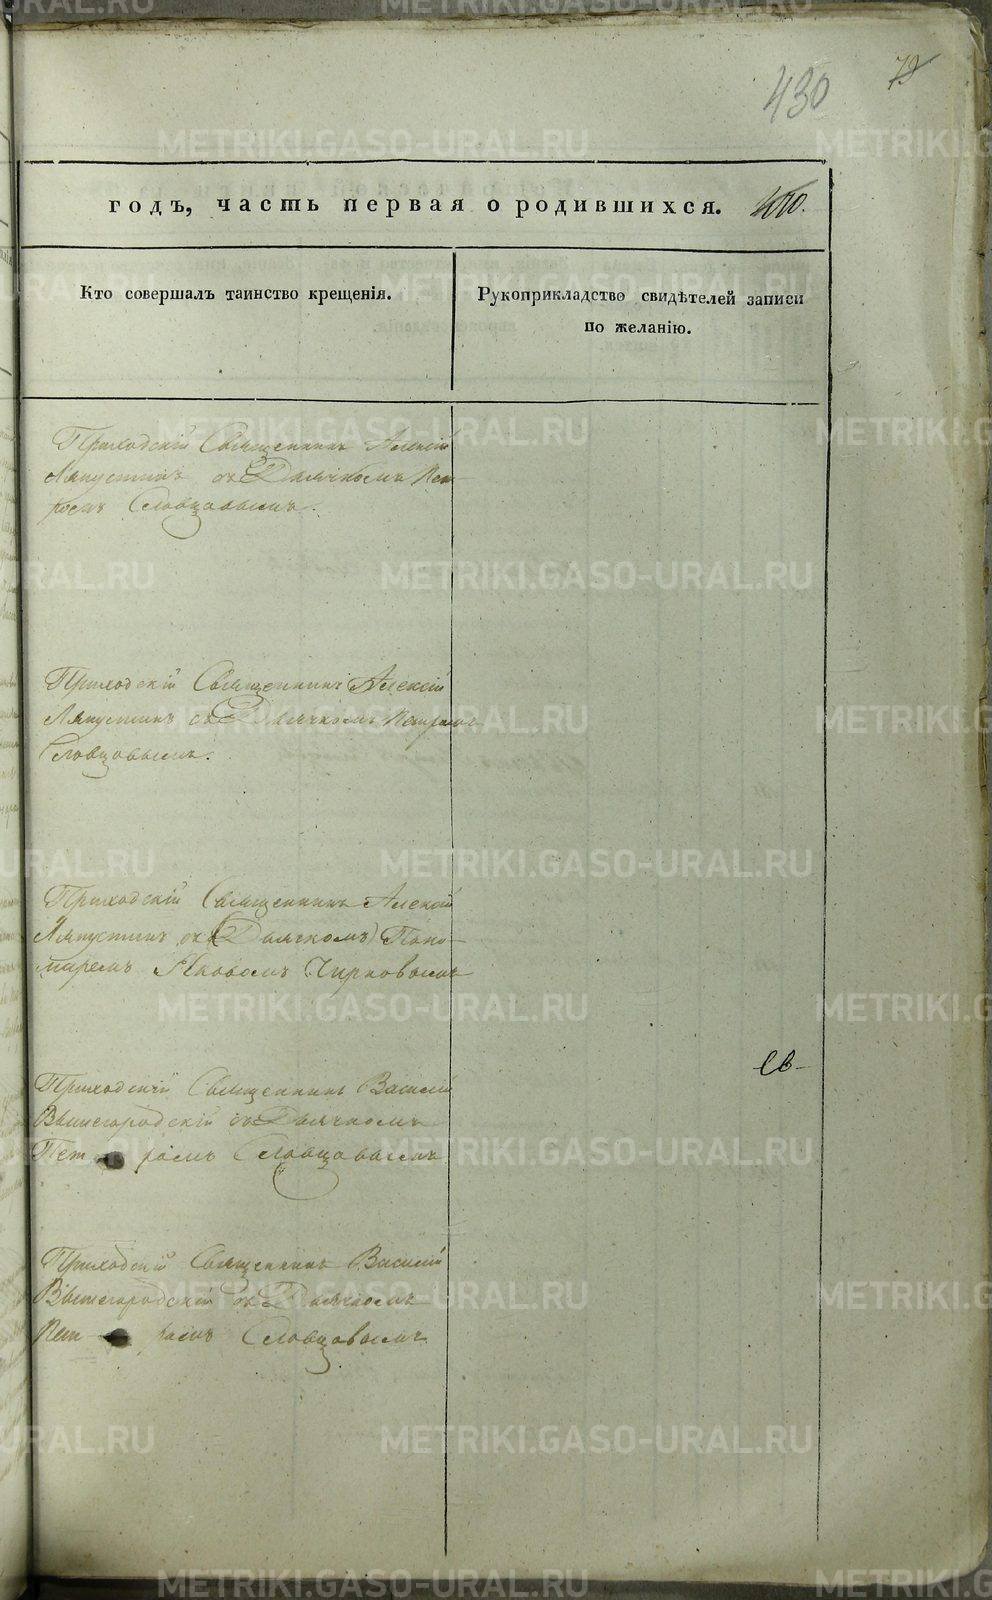 430
79
годъ, часть первая о родившихся. 400.
Кто совершалъ таинство крещенія.
Рукоприкладство свидѣтелей записи
по желанію.
Приходскій Священникъ Алексій
Ляпустинъ съ Дьячкомъ Пет-
ромъ Словцовымъ.
Приходскій Священникъ Алексій
Ляпустинъ съ Дьячкомъ Петромъ
Словцовымъ.
Приходскій Священникъ Алексій
Ляпустинъ съ (Дьячкомъ) Поно-
маремъ Чирковымъ
Св
Приходскій Священникъ Василій
Вышегородскій съ Дьячкомъ
Пет ромъ Словцовымъ
Приходскій Священникъ Василій
Вышегородскій съ Дьячкомъ
Пет ромъ Словцовымъ
METRIKI.GASO-URAL.RU